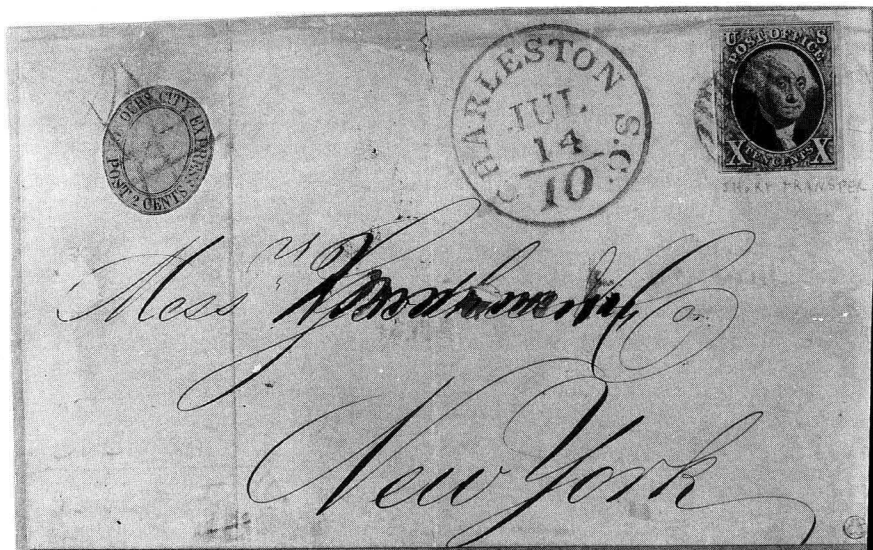 OURS CITY EXPRESS POST 2 CENTS
CHARLESTON S.C.
JUL
14
10
U S
POST OFFICE
X TEN CENTS X
SHORT TRANSFER
Messrs
Co.
New York